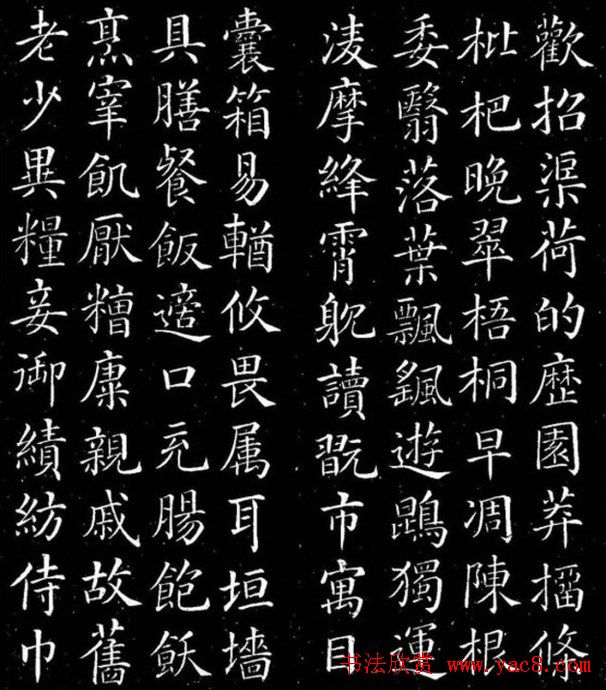 歡招渠荷的歷園莽㨨條
枇杷晚翠梧桐早凋陳根
委翳落葉飄颻遊鵾獨運
淩摩絳霄躭讀翫市寓目
囊箱易輶攸畏属耳垣墻
具膳餐飯適口充腸飽飫
烹宰飢厭糟糠親戚故舊
老少異糧妾御績紡侍巾
书法欣赏 www.yac8.com